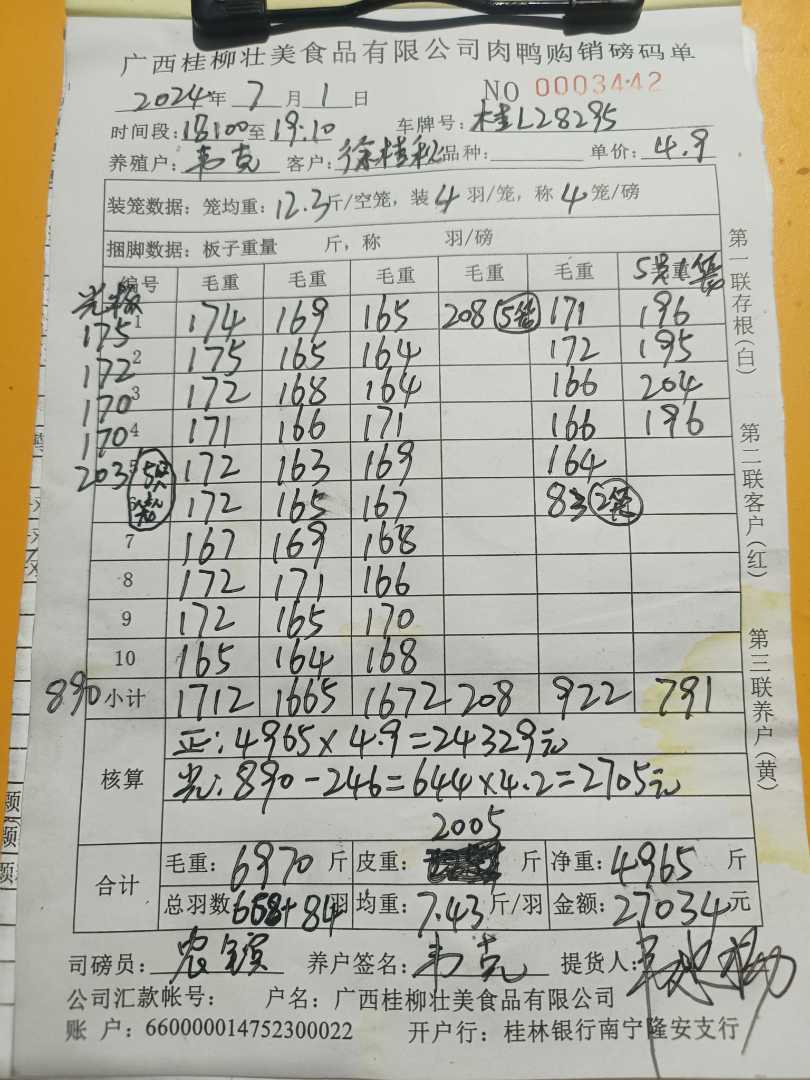 广西桂柳壮美食品有限公司肉鸭购销磅码单
2024年 7 月 1 日 NO 0003442
时间段:18:00至19:10 车牌号:桂L28295
养殖户:韦克 客户:徐桂秋 品种: 单价:4.9
装笼数据:笼均重:12.3斤/空笼,装4羽/笼,称4笼/磅
捆脚数据:板子重量 斤,称 羽/磅
编号 毛重 毛重 毛重 毛重 毛重 5只1笼
光
175 1 174 169 165 208 5笼 171 196
172 2 175 165 164 172 195
170 3 172 168 164 166 204
170 4 171 166 171 166 196
203 5 172 163 169 164
6 172 165 167 83 2笼
7 167 169 168
8 172 171 166
9 172 165 170
10 165 164 168
890 小计 1712 1665 1672 208 922 791
核算 正:4965×4.9=24329元
光:890-246=644×4.2=2705元
2005
合计 毛重:6970 斤 皮重: 斤 净重:4965 斤
总羽数668+84羽 均重:7.43斤/羽 金额:27034元
司磅员:农 养户签名:韦克 提货人:
公司汇款帐号: 户名:广西桂柳壮美食品有限公司
账 户:660000014752300022 开户行:桂林银行南宁隆安支行
第一联存根(白)
第二联客户(红)
第三联养户(黄)